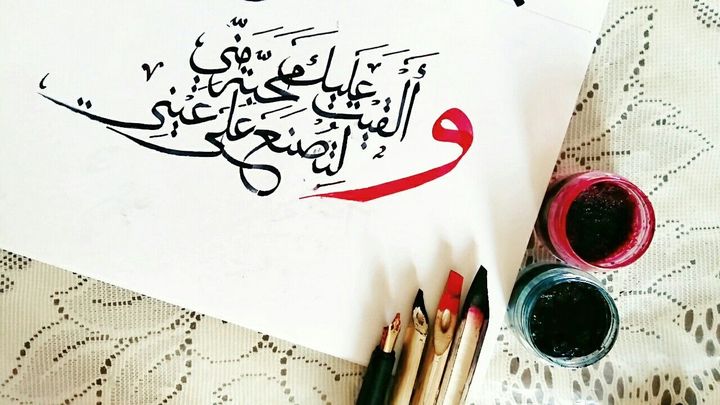 وَأَلْقَيْتُ عَلَيْكَ مَحَبَّةً مِّنِّي
وَلِتُصْنَعَ عَلَى عَيْنِي